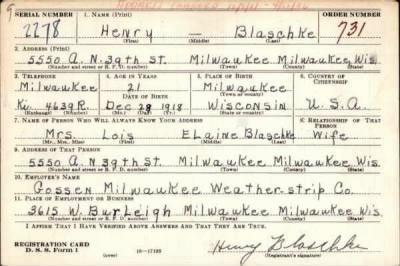 SERIAL NUMBER 1. NAME (Print) ORDER NUMBER
2278 Henry — Blaschke 731
(First) (Middle) (Last)
2. ADDRESS (Print)
5550 A. N 39th ST. Milwaukee Milwaukee Wis
(Number and street or R. F. D. number) (Town) (County) (State)
3. TELEPHONE 4. AGE IN YEARS 5. PLACE OF BIRTH 6. COUNTRY OF CITIZENSHIP
Milwaukee 21 Milwaukee
DATE OF BIRTH (Town or county)
Ki. 4639R. Dec 28 1918 Wisconsin U.S.A.
(Exchange) (Number) (Mo.) (Day) (Yr.) (State or country)
7. NAME OF PERSON WHO WILL ALWAYS KNOW YOUR ADDRESS 8. RELATIONSHIP OF THAT PERSON
Mrs. Lois ELaine Blaschke Wife
(Mr., Mrs., Miss) (First) (Middle) (Last)
9. ADDRESS OF THAT PERSON
5550 A. N 39th St. Milwaukee Milwaukee Wis.
(Number and street or R. F. D. number) (Town) (County) (State)
10. EMPLOYER'S NAME
Gossen Milwaukee Weather-strip Co.
11. PLACE OF EMPLOYMENT OR BUSINESS
3615 W. Burleigh Milwaukee Milwaukee Wis
(Number and street or R. F. D. number) (Town) (County) (State)
I AFFIRM THAT I HAVE VERIFIED ABOVE ANSWERS AND THAT THEY ARE TRUE.
REGISTRATION CARD
D. S. S. Form 1 16-17105 Henry Blaschke
(Registrant's signature)